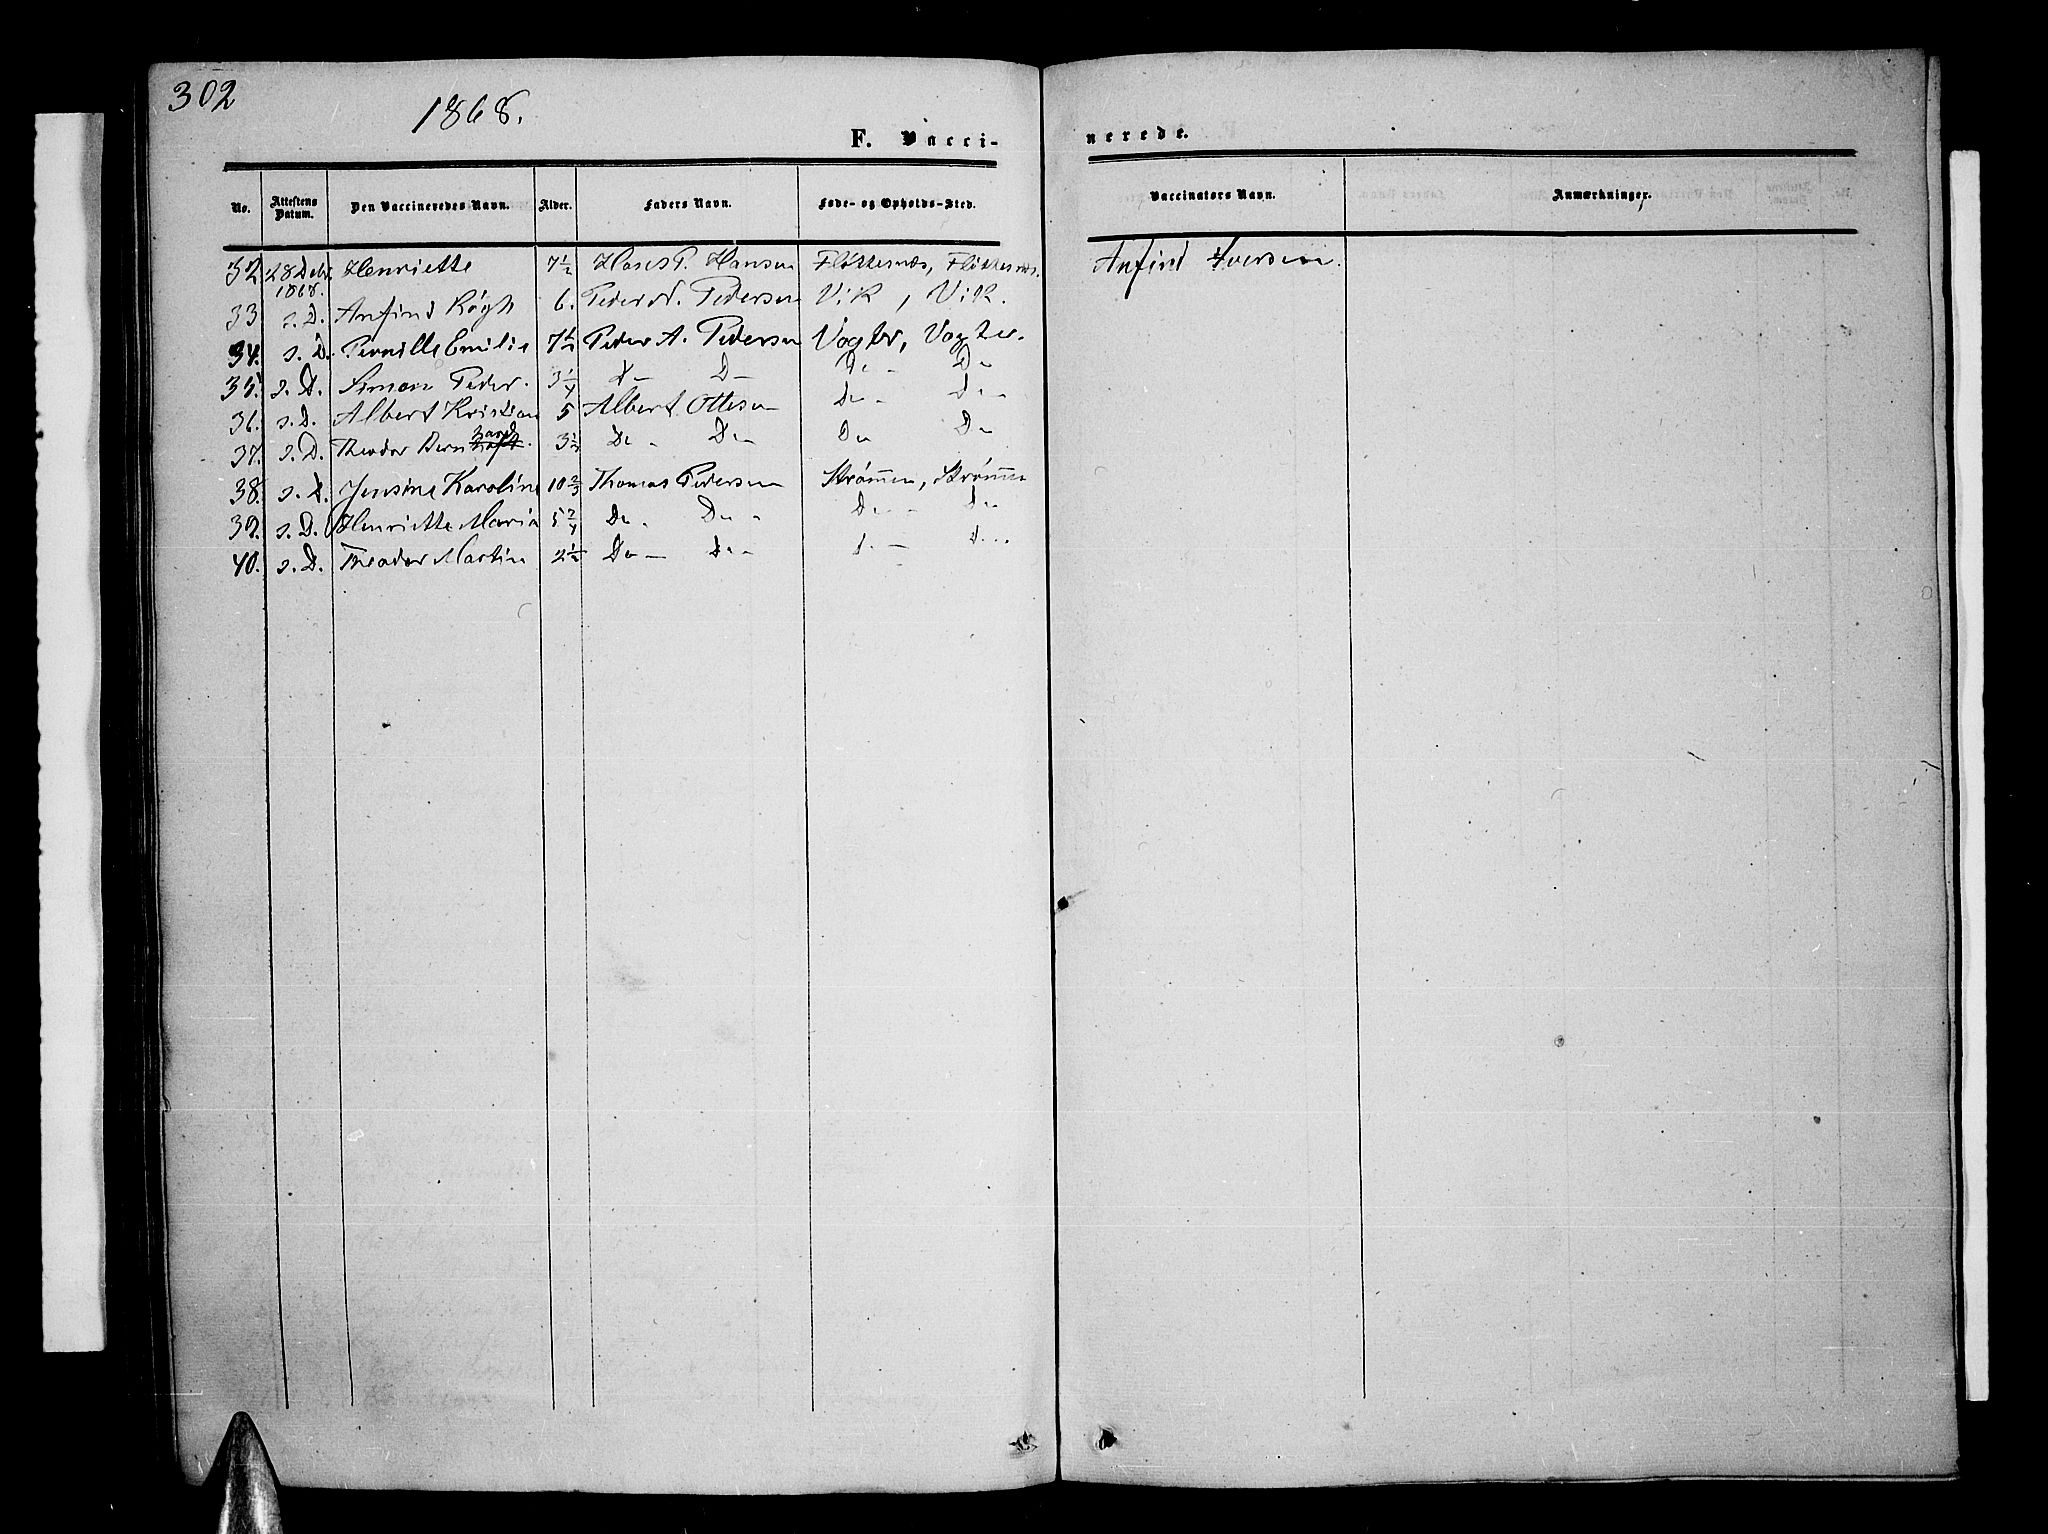 302
1868.
F. Vacci-
nerede.
No. Attestens Datum. Den Vaccineredes Navn. Alder. Faders Navn. Føde- og Opholds-Sted. Vaccinators Navn. Anmærkninger.
32. 28 Debr 1868. Henriette 7½ Hans P. Hansen Fløttesnæs, Fløttesnæs. Anfind Iversen.
33 s. D. Anfind Røgh 6. Peder N. Pedersen Vik, Vik.
34. s. D. Pernille Emilie 7½ Peder A. Pedersen Vogter, Vogter.
35. s. D. Simon Peder. 3¼ do D- Do - Do
36. s. D. Albert Kristian 5 Albert Ottesen Do - do -
37. s. D. Theodor Bernhard. 3½ Do - Do Do Do
38. s. D. Jensine Karoline 10⅔ Thomas Pedersen Strømen, Strømen
39. s. D. Henriette Maria 5¾ Do - Do - Do - Do
40. s. D. Theodor Martin 2½ Do - do - d. - d...